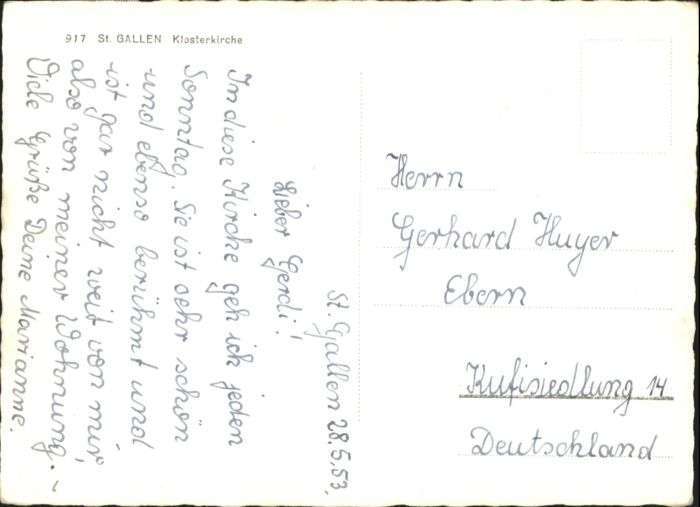 917 St. GALLEN Klosterkirche
St. Gallen 28.5.53.
Lieber Gerdi!
In diese Kirche geh ich jeden
Sonntag. Sie ist sehr schön
und ebenso berühmt und
ist gar nicht weit von mir,
also von meiner Wohnung. ~
Viele Grüße Deine Marianne.
Herrn
Gerhard Huyer
Ebern
Kufisiedlung 14
Deutschland